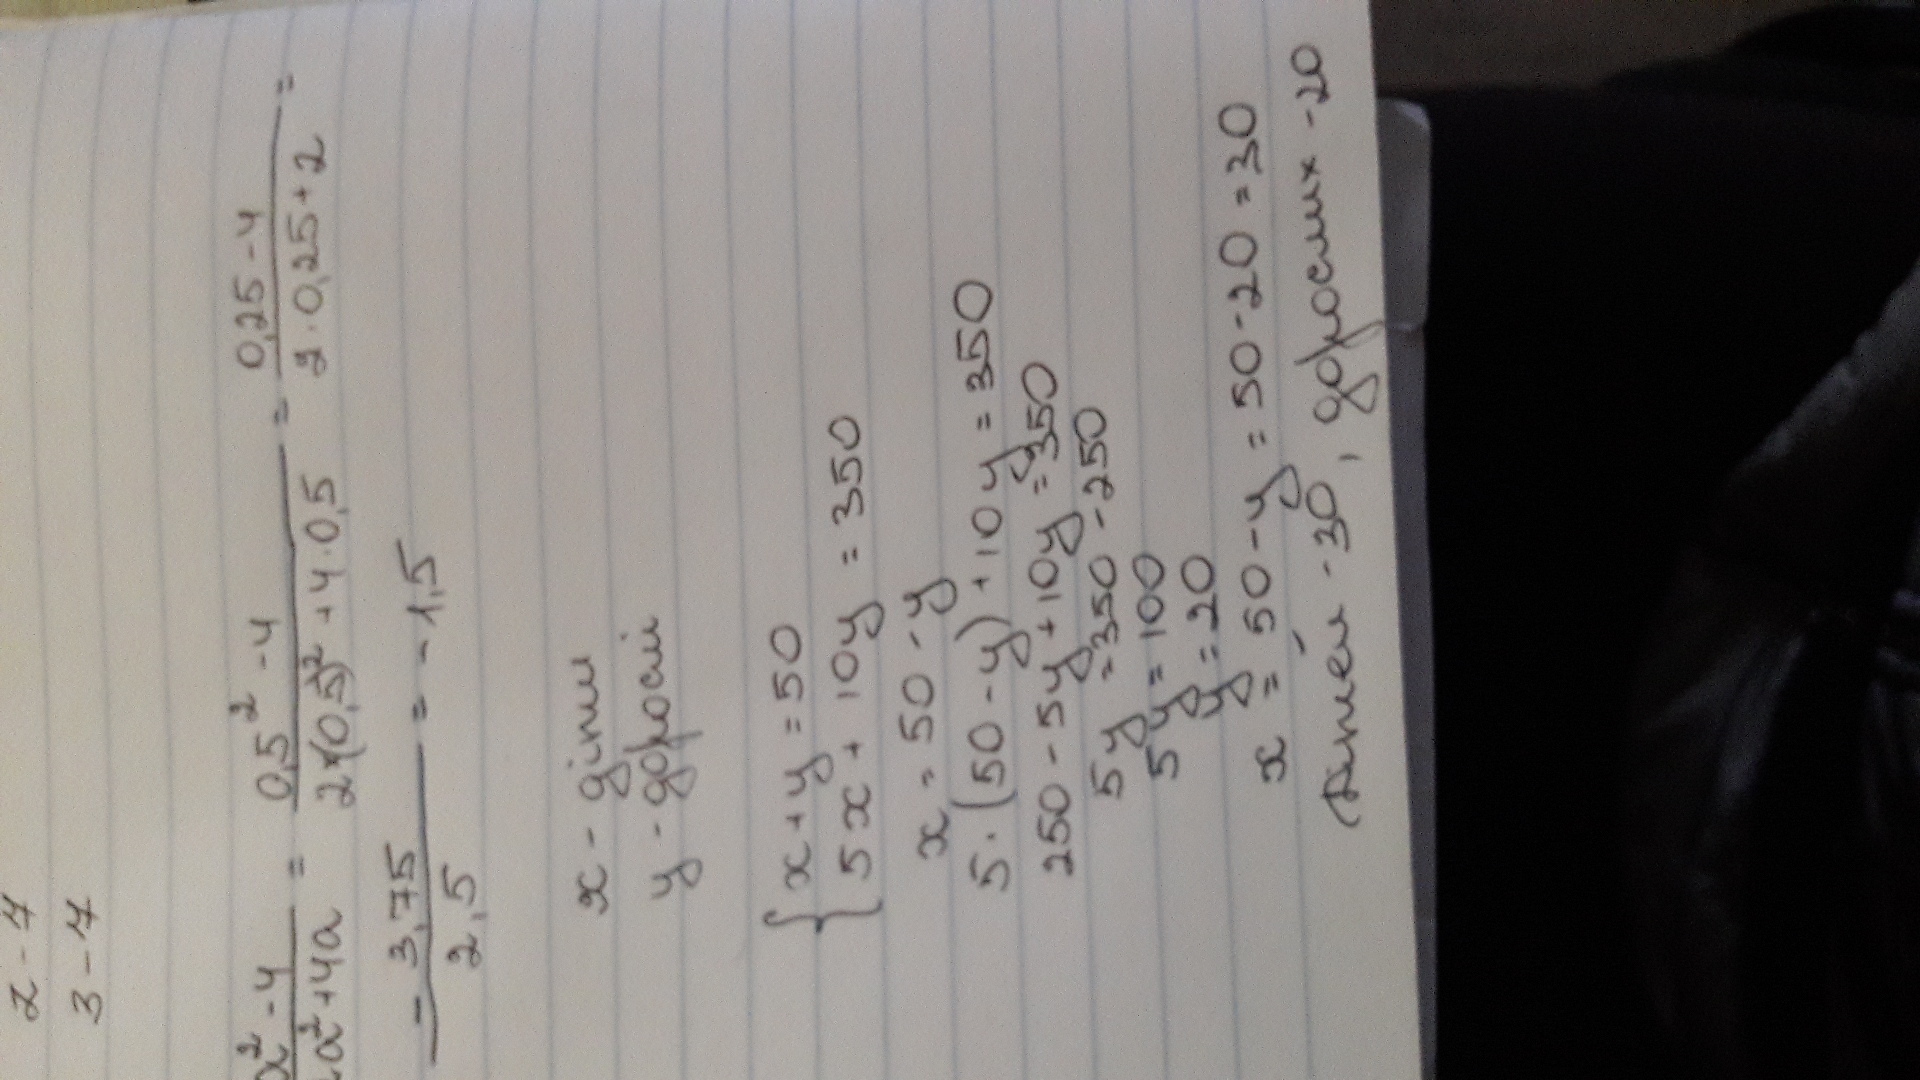 2 - 4
3 - 4
a² - 4 / 2a² + 4a = 0,5² - 4 / 2·(0,5)² + 4·0,5 = 0,25 - 4 / 2·0,25 + 2 =
- 3,75 / 2,5 = - 1,5
x - діти
y - дорослі
{ x + y = 50
5x + 10y = 350
x = 50 - y
5·(50 - y) + 10y = 350
250 - 5y + 10y = 350
5y = 350 - 250
5y = 100
y = 20
x = 50 - y = 50 - 20 = 30
Дітей - 30, дорослих - 20